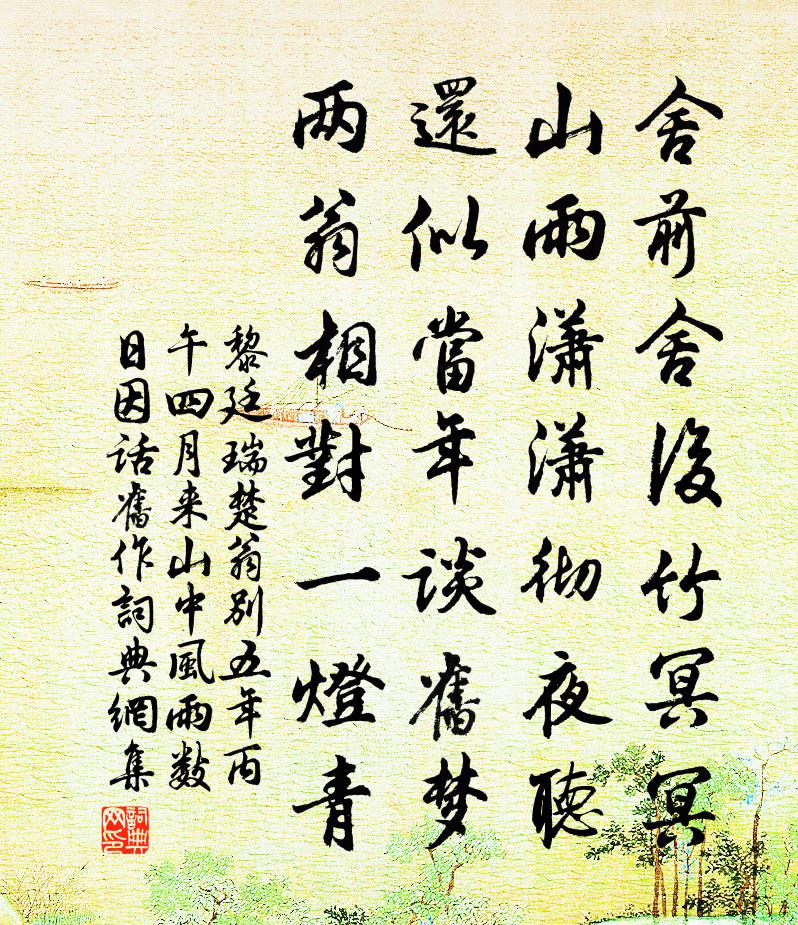 舍前舍後竹冥冥
山雨瀟瀟彻夜聽
還似當年談舊梦
两翁相對一燈青
黎廷瑞楚翁别五年丙
午四月来山中風雨数
日因话舊作詞典網集
詞典網印